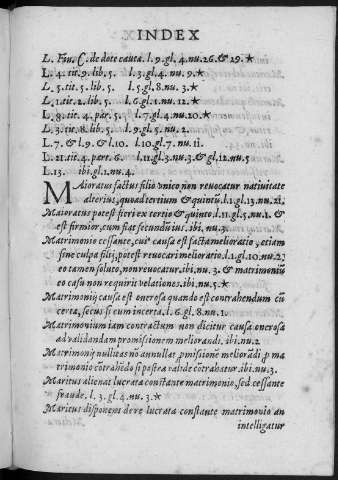 INDEX
L. Fin. C. de dote cauta. l.9.gl.4.nu.26.& 29.*
L. 4. tit. 9. lib. 5. l.3.gl.4. nu. 9.*
L. 5. tit. 5. lib. 5. l.5.gl.8.nu. 3.*
L. 1. tit. 2. lib. 5. l.6.gl.1.nu. 12.*
L. 9. tit. 4. par. 5. l.7.gl.4.nu.20.*
L. 3. tit. 8. lib. 5. l.9.gl.5.nu. 2.
L. 7. & l.9. & l.10. l.10.gl.7. nu. 11.
L. 21. tit. 4. part. 6. l.11.gl.3.nu.3.& gl.12.nu.5
L. 13. ibi.gl.1.nu. 4.
Maioratus factus filio vnico non reuocatur natiuitate
alterius, quoad tertium & quintū. l.1.gl.13.nu.21.
Maioratus potest fieri ex tertio & quinto. l.11.gl.5.nu.1. &
est firmior, cum fiat secundū ius. ibi.nu.3.
Matrimonio cessante, cui9 causa est facta melioratio, etiam
sine culpa filij, potest reuocari melioratio. l.1.gl.10.nu.2;
eo tamen soluto, non reuocatur. ibi.nu. 3. & matrimoniū
eo casu non requirit velationes. ibi.nu.5.*
Matrimonij causa est onerosa quando est contrahendum cū
certa, secus si cum incerta. l.6.gl.8.nu.1.
Matrimonium iam contractum non dicitur causa onerosa
ad validandam promissionem meliorandi. ibi.nu.2
Matrimonij nullitas nō annullat promissionē meliorādi p ma
trimonio cōtrahēdo si postea validè cōtrahatur. ibi.nu.3.
Maritus alienat lucrata constante matrimonio, sed cessante
fraude. l. 3. gl. 4. nu. 3.*
Maritus disponens de re lucrata constante matrimonio an
intelligatur